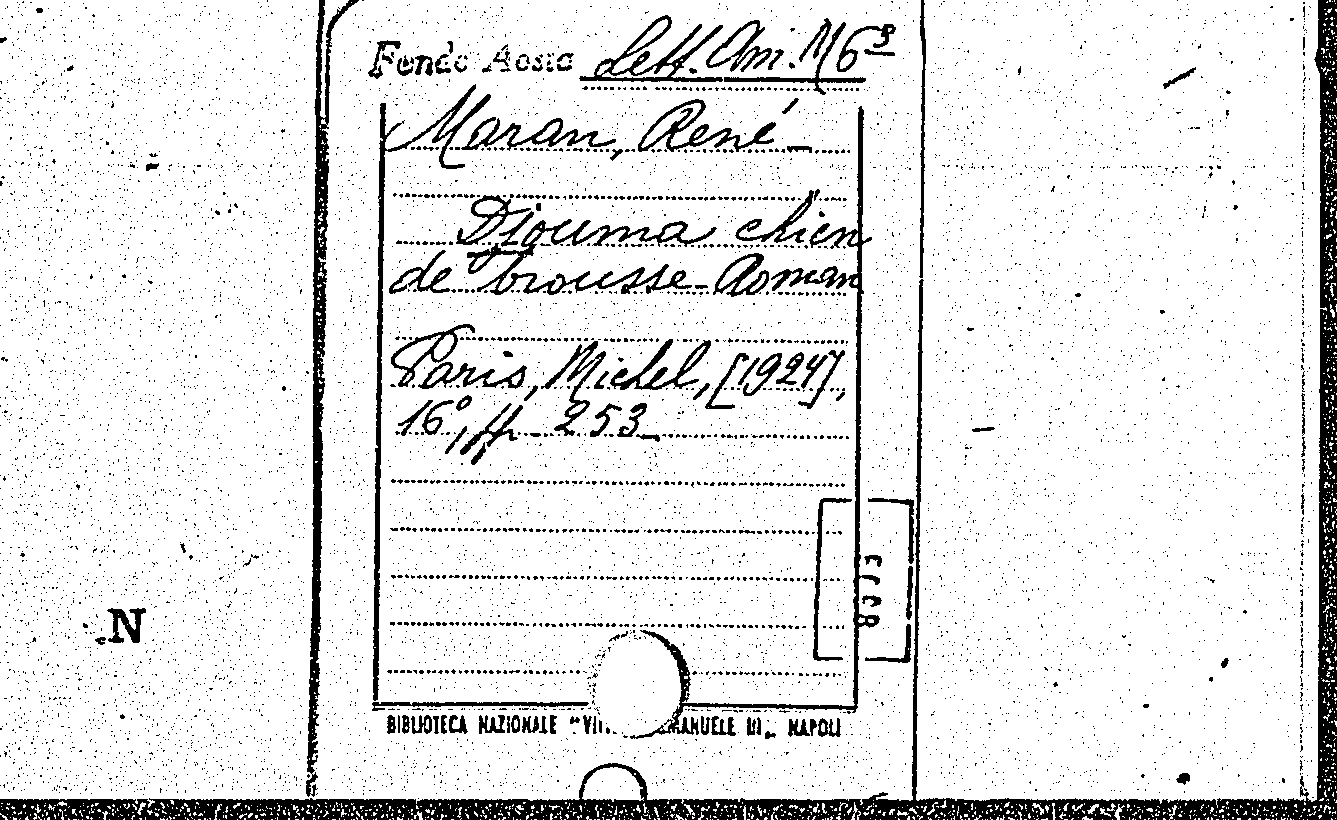 Fondo Aosta Lett. Am. M 63
Maran, René -
Djouma chien
de brousse - Roman
Paris, Michel, [1924],
16°, pp. 253 -
N
BIBLIOTECA NAZIONALE "VITT. EMANUELE III„ NAPOLI